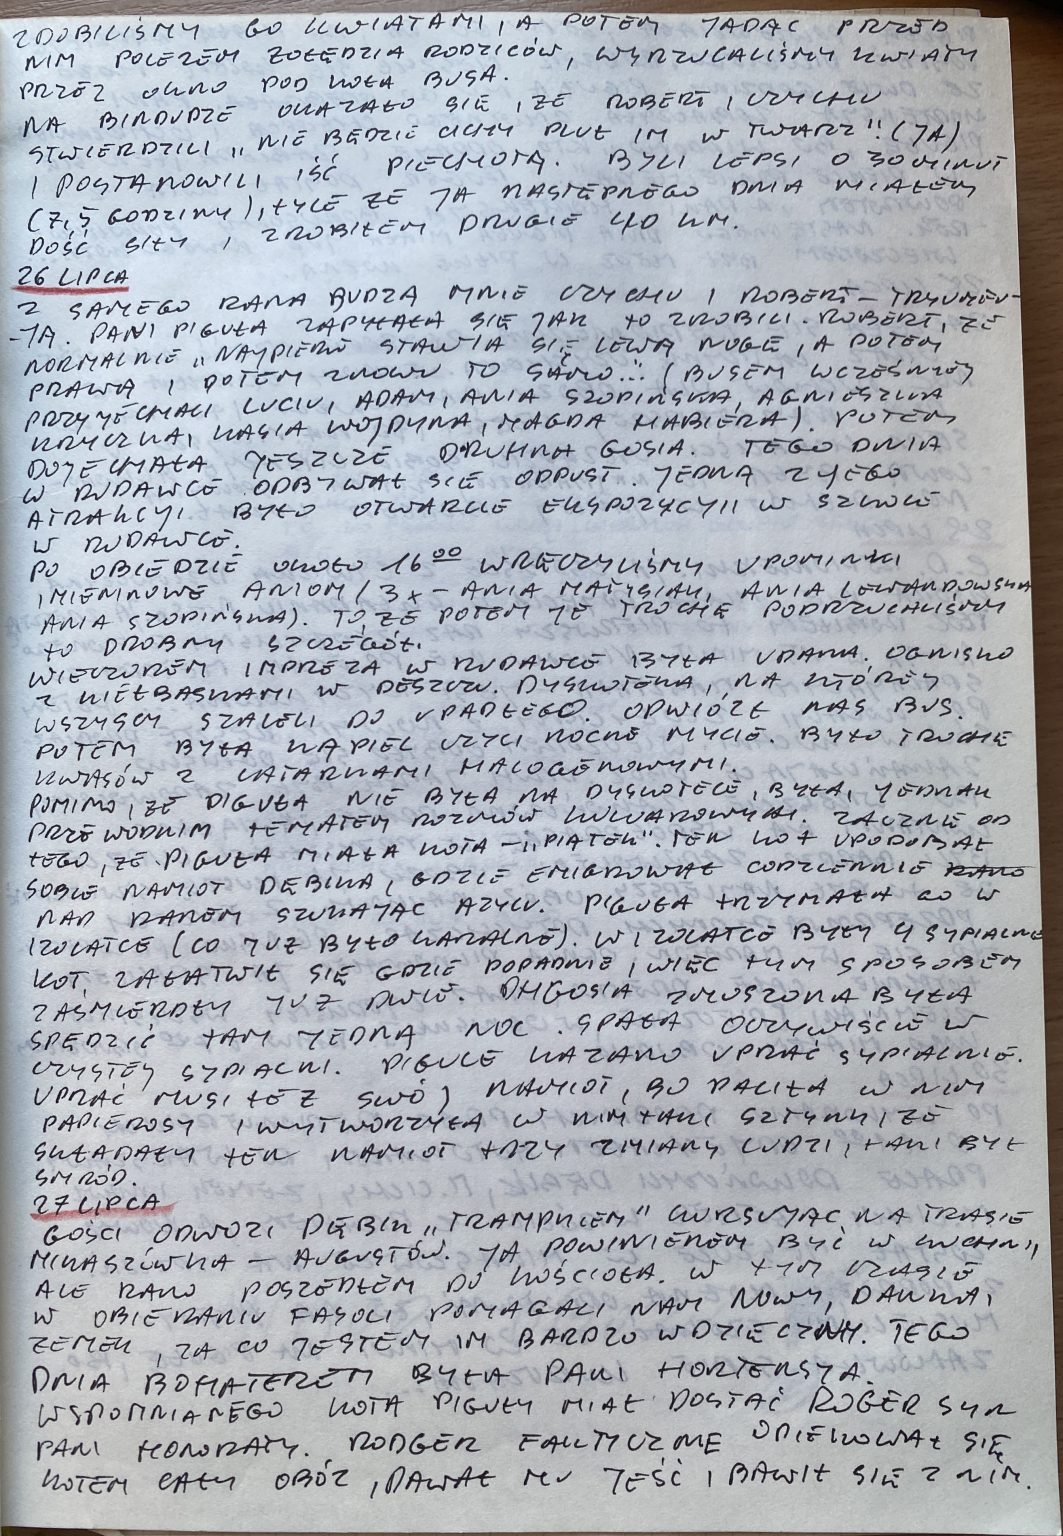 ZDOBILIŚMY GO KWIATAMI, A POTEM JADĄC PRZED
NIM POLEZEM ZOŁĘDZIA RODZICÓW, WYRZUCALIŚMY KWIATY
PRZEZ OKNO POD KOŁA BUSA.
NA BINDUDZE OKAZAŁO SIĘ, ŻE ROBERT, CZYCHU
STWIERDZILI „NIE BĘDZIE CICHY PLUŁ IM W TWARZ". (JA)
I POSTANOWILI IŚĆ PIECHOTĄ. BYLI LEPSI O 30 MINUT
(7,5 GODZINY), TYLE ŻE JA NASTĘPNEGO DNIA MIAŁEM
DOŚĆ SIŁY I ZROBIŁEM DRUGIE 40 KM.
26 LIPCA
Z SAMEGO RANA BUDZĄ MNIE CZYCHU I ROBERT - TRYUMFU-
-JĄ. PANI PIGUŁA ZAPYTAŁA SIĘ JAK TO ZROBILI. ROBERT, ŻE
NORMALNIE „NAJPIERW STAWIA SIĘ LEWĄ NOGĘ, A POTEM
PRAWĄ I POTEM ZNOWU TO SAMO..." (BUSEM WCZEŚNIEJ
PRZYJECHALI LUCIU, ADAM, ANIA SZOPIŃSKA, AGNIESZKA
KRYCZKA, KASIA WOJDYNA, MAGDA HABIERA). POTEM
DOJECHAŁA JESZCZE DRUHNA GOSIA. TEGO DNIA
W RUDAWCE ODBYWAŁ SIĘ ODPUST. JEDNĄ Z JEGO
ATRAKCJI BYŁO OTWARCIE EKSPOZYCJI W SZKOLE
W RUDAWCE.
PO OBIEDZIE OKOŁO 16⁰⁰ WRĘCZYLIŚMY UPOMINKI
IMIENINOWE ANIOM (3x - ANIA MATYSIAK, ANIA LEWANDOWSKA
ANIA SZOPIŃSKA). TO, ŻE POTEM JE TROCHĘ PODRZUCALIŚMY
TO DROBNY SZCZEGÓŁ.
WIECZOREM IMPREZA W RUDAWCE BYŁA UDANA. OGNISKO
Z KIEŁBASKAMI W DESZCZU. DYSKOTEKA, NA KTÓREJ
WSZYSCY SZALELI DO UPADŁEGO. ODWIÓZŁ NAS BUS.
POTEM BYŁA KĄPIEL CZYLI NOCNE MYCIE. BYŁO TROCHĘ
KWASÓW Z LATARKAMI HALOGENOWYMI.
POMIMO, ŻE PIGUŁA NIE BYŁA NA DYSKOTECE, BYŁA, JEDNAK
PRZEWODNIM TEMATEM ROZMÓW KULUAROWYCH. ZACZNĘ OD
TEGO, ŻE PIGUŁA MIAŁA KOTA - „PIĄTEK". TEN KOT UPODOBAŁ
SOBIE NAMIOT DĘBINA, GDZIE EMIGROWAŁ CODZIENNIE RANO
NAD RANEM SZUKAJĄC AZYLU. PIGUŁA TRZYMAŁA GO W
IZOLATCE (CO JUŻ BYŁO KARALNE). W IZOLATCE BYŁY 4 SYPIALNIE
KOT, ZAŁATWIŁ SIĘ GDZIE POPADNIE, WIĘC TYM SPOSOBEM
ZAŚMIERDŁY JUŻ DWIE. DHGOSIA ZMUSZONA BYŁA
SPĘDZIĆ TAM JEDNĄ NOC. SPAŁA OCZYWIŚCIE W
CZYSTEJ SYPIALNI. PIGULE KAZANO UPRAĆ SYPIALNIE.
UPRAĆ MUSI TEŻ SWÓJ NAMIOT, BO PALIŁA W NIM
PAPIEROSY I WYTWORZYŁA W NIM TAKI SZTYNK, ŻE
SKŁADAŁY TEN NAMIOT TRZY ZMIANY LUDZI, TAKI BYŁ
SMRÓD.
27 LIPCA
GOŚCI ODWOZI DĘBIK „TRAMPKIEM" KURSUJĄC NA TRASIE
MIKASZÓWKA - AUGUSTÓW. JA POWINIENEM BYĆ W KUCHNI,
ALE RANO POSZEDŁEM DO KOŚCIOŁA. W TYM CZASIE
W OBIERANIU FASOLI POMAGALI NAM NOWY, DANKA,
ZEMEK, ZA CO JESTEM IM BARDZO WDZIĘCZNY. TEGO
DNIA BOHATEREM BYŁA PANI HORTENSJA.
WSPOMNIANEGO KOTA PIGUŁY MIAŁ DOSTAĆ ROGER SYN
PANI HONORATY. RODGER FAKTYCZNIE OPIEKOWAŁ SIĘ
KOTEM CAŁY OBÓZ, DAWAŁ MU JEŚĆ I BAWIŁ SIĘ Z NIM.